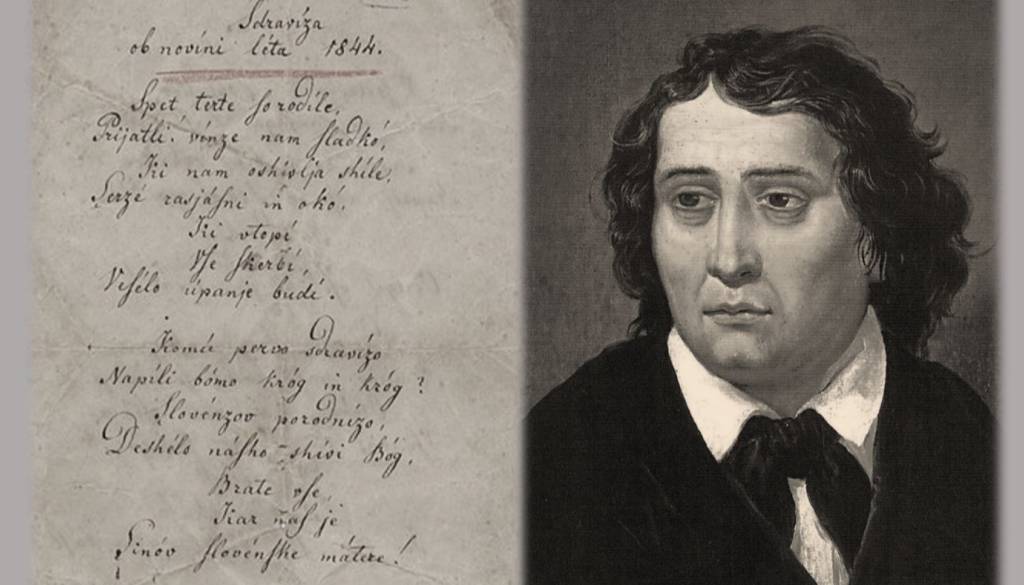 Sdravíza
ob novíni léta 1844.
Spet terte so rodile,
Prijatli! vínze nam sladkó,
Ki nam oshivlja shile,
Serzé rasjásni in okó,
Ki vtopí
Vse skerbí,
Vesélo upanje budí.
Komú pervo sdravízo
Napili bómo króg in króg?
Slovénzov porodnízo,
Deshélo násho shivi Bóg,
Brate vse,
Kar nas je
Sinóv slovénske mátere!